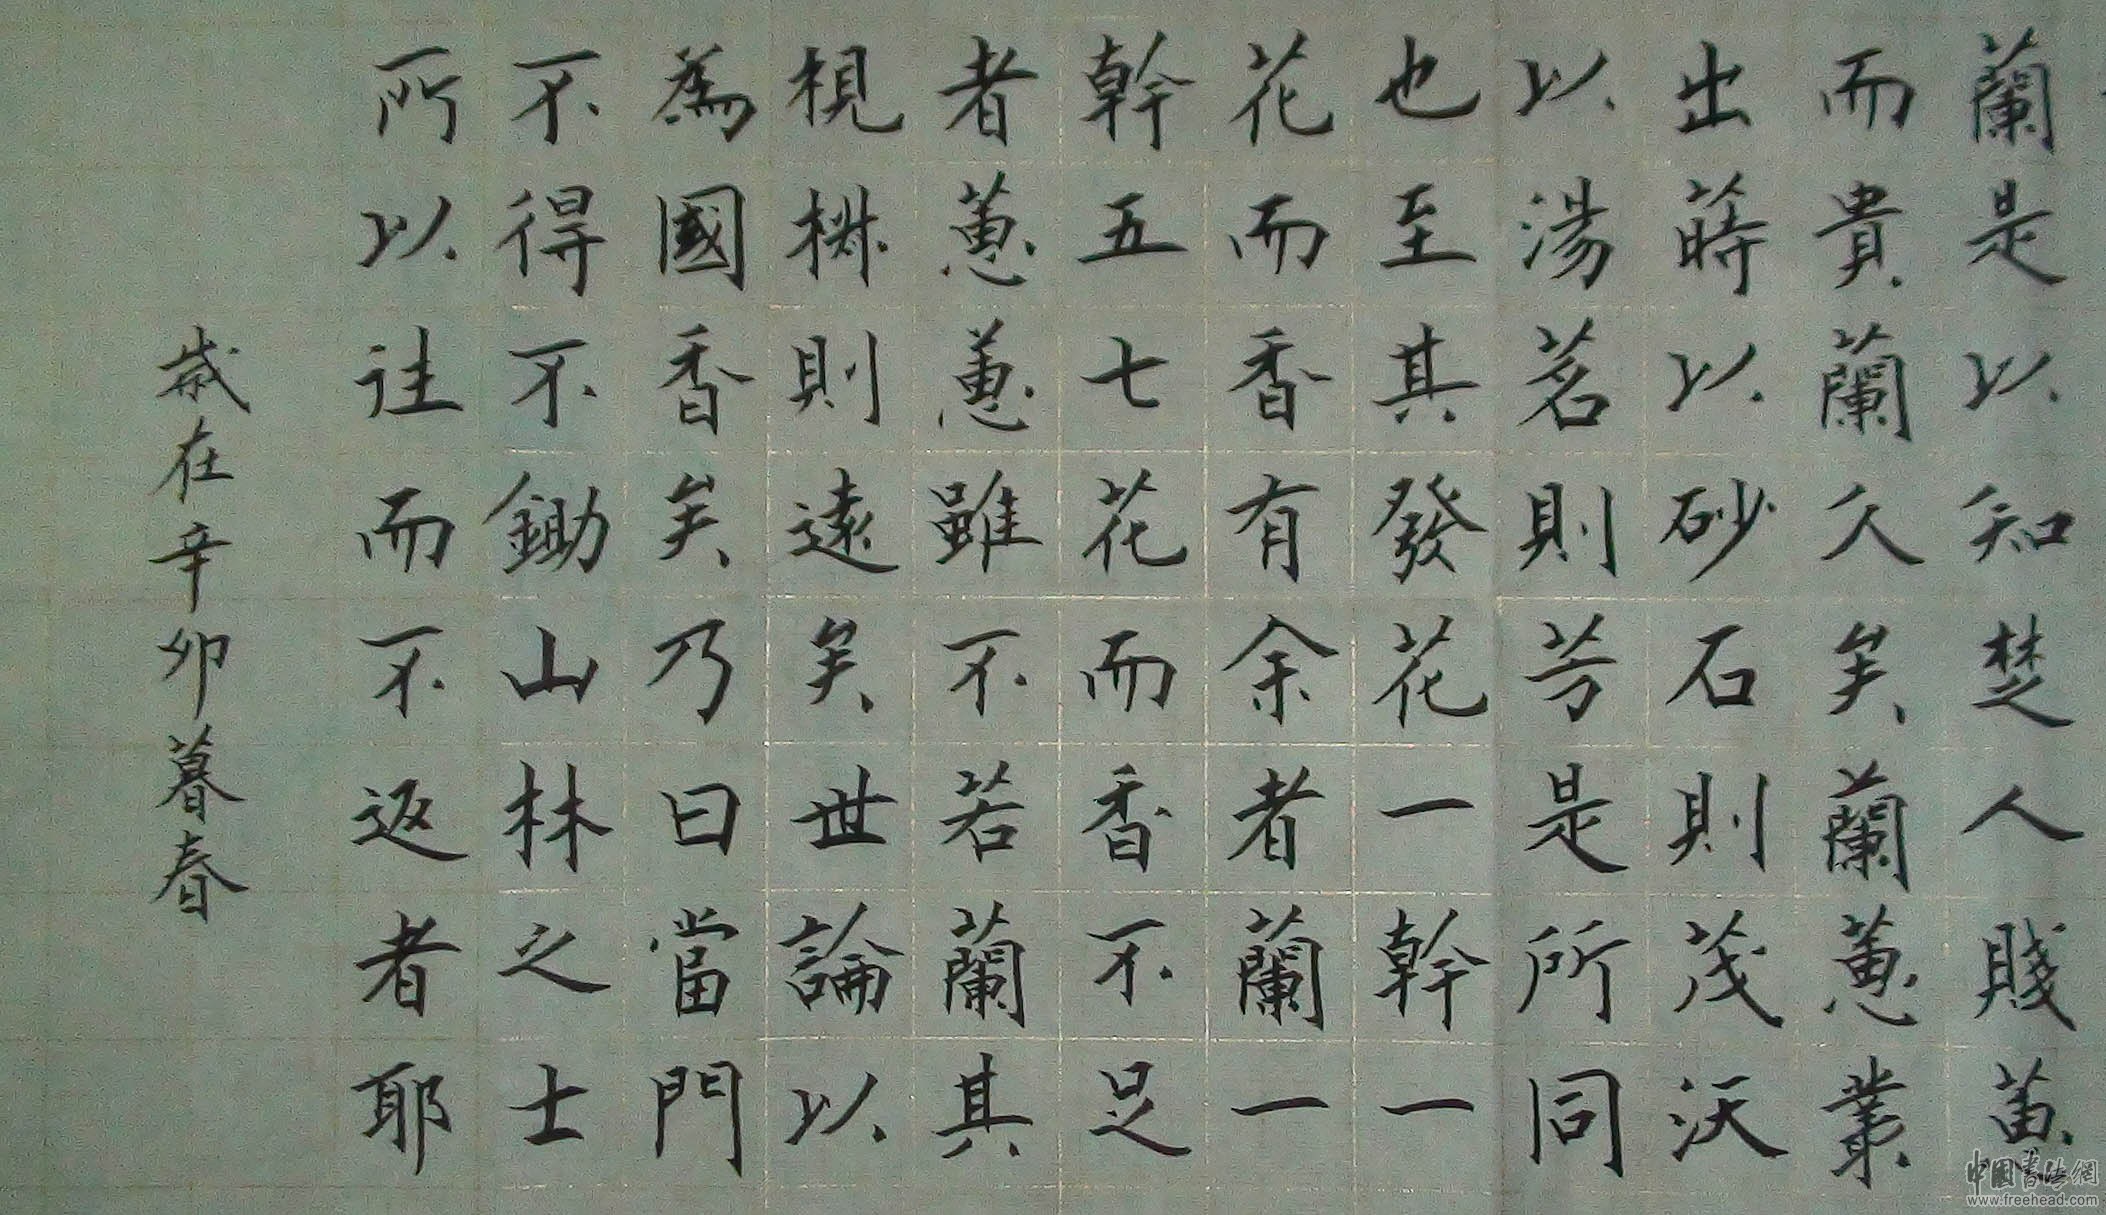 蘭是以知楚人賤蕙
而貴蘭久矣蘭蕙叢
出蒔以砂石則茂沃
以湯茗則芳是所同
也至其發花一幹一
花而香有余者蘭一
幹五七花而香不足
者蕙蕙雖不若蘭其
視椒則遠矣世論以
為國香矣乃曰當門
不得不鋤山林之士
所以往而不返者耶
歲在辛卯暮春
中國書法網
www.freehead.com